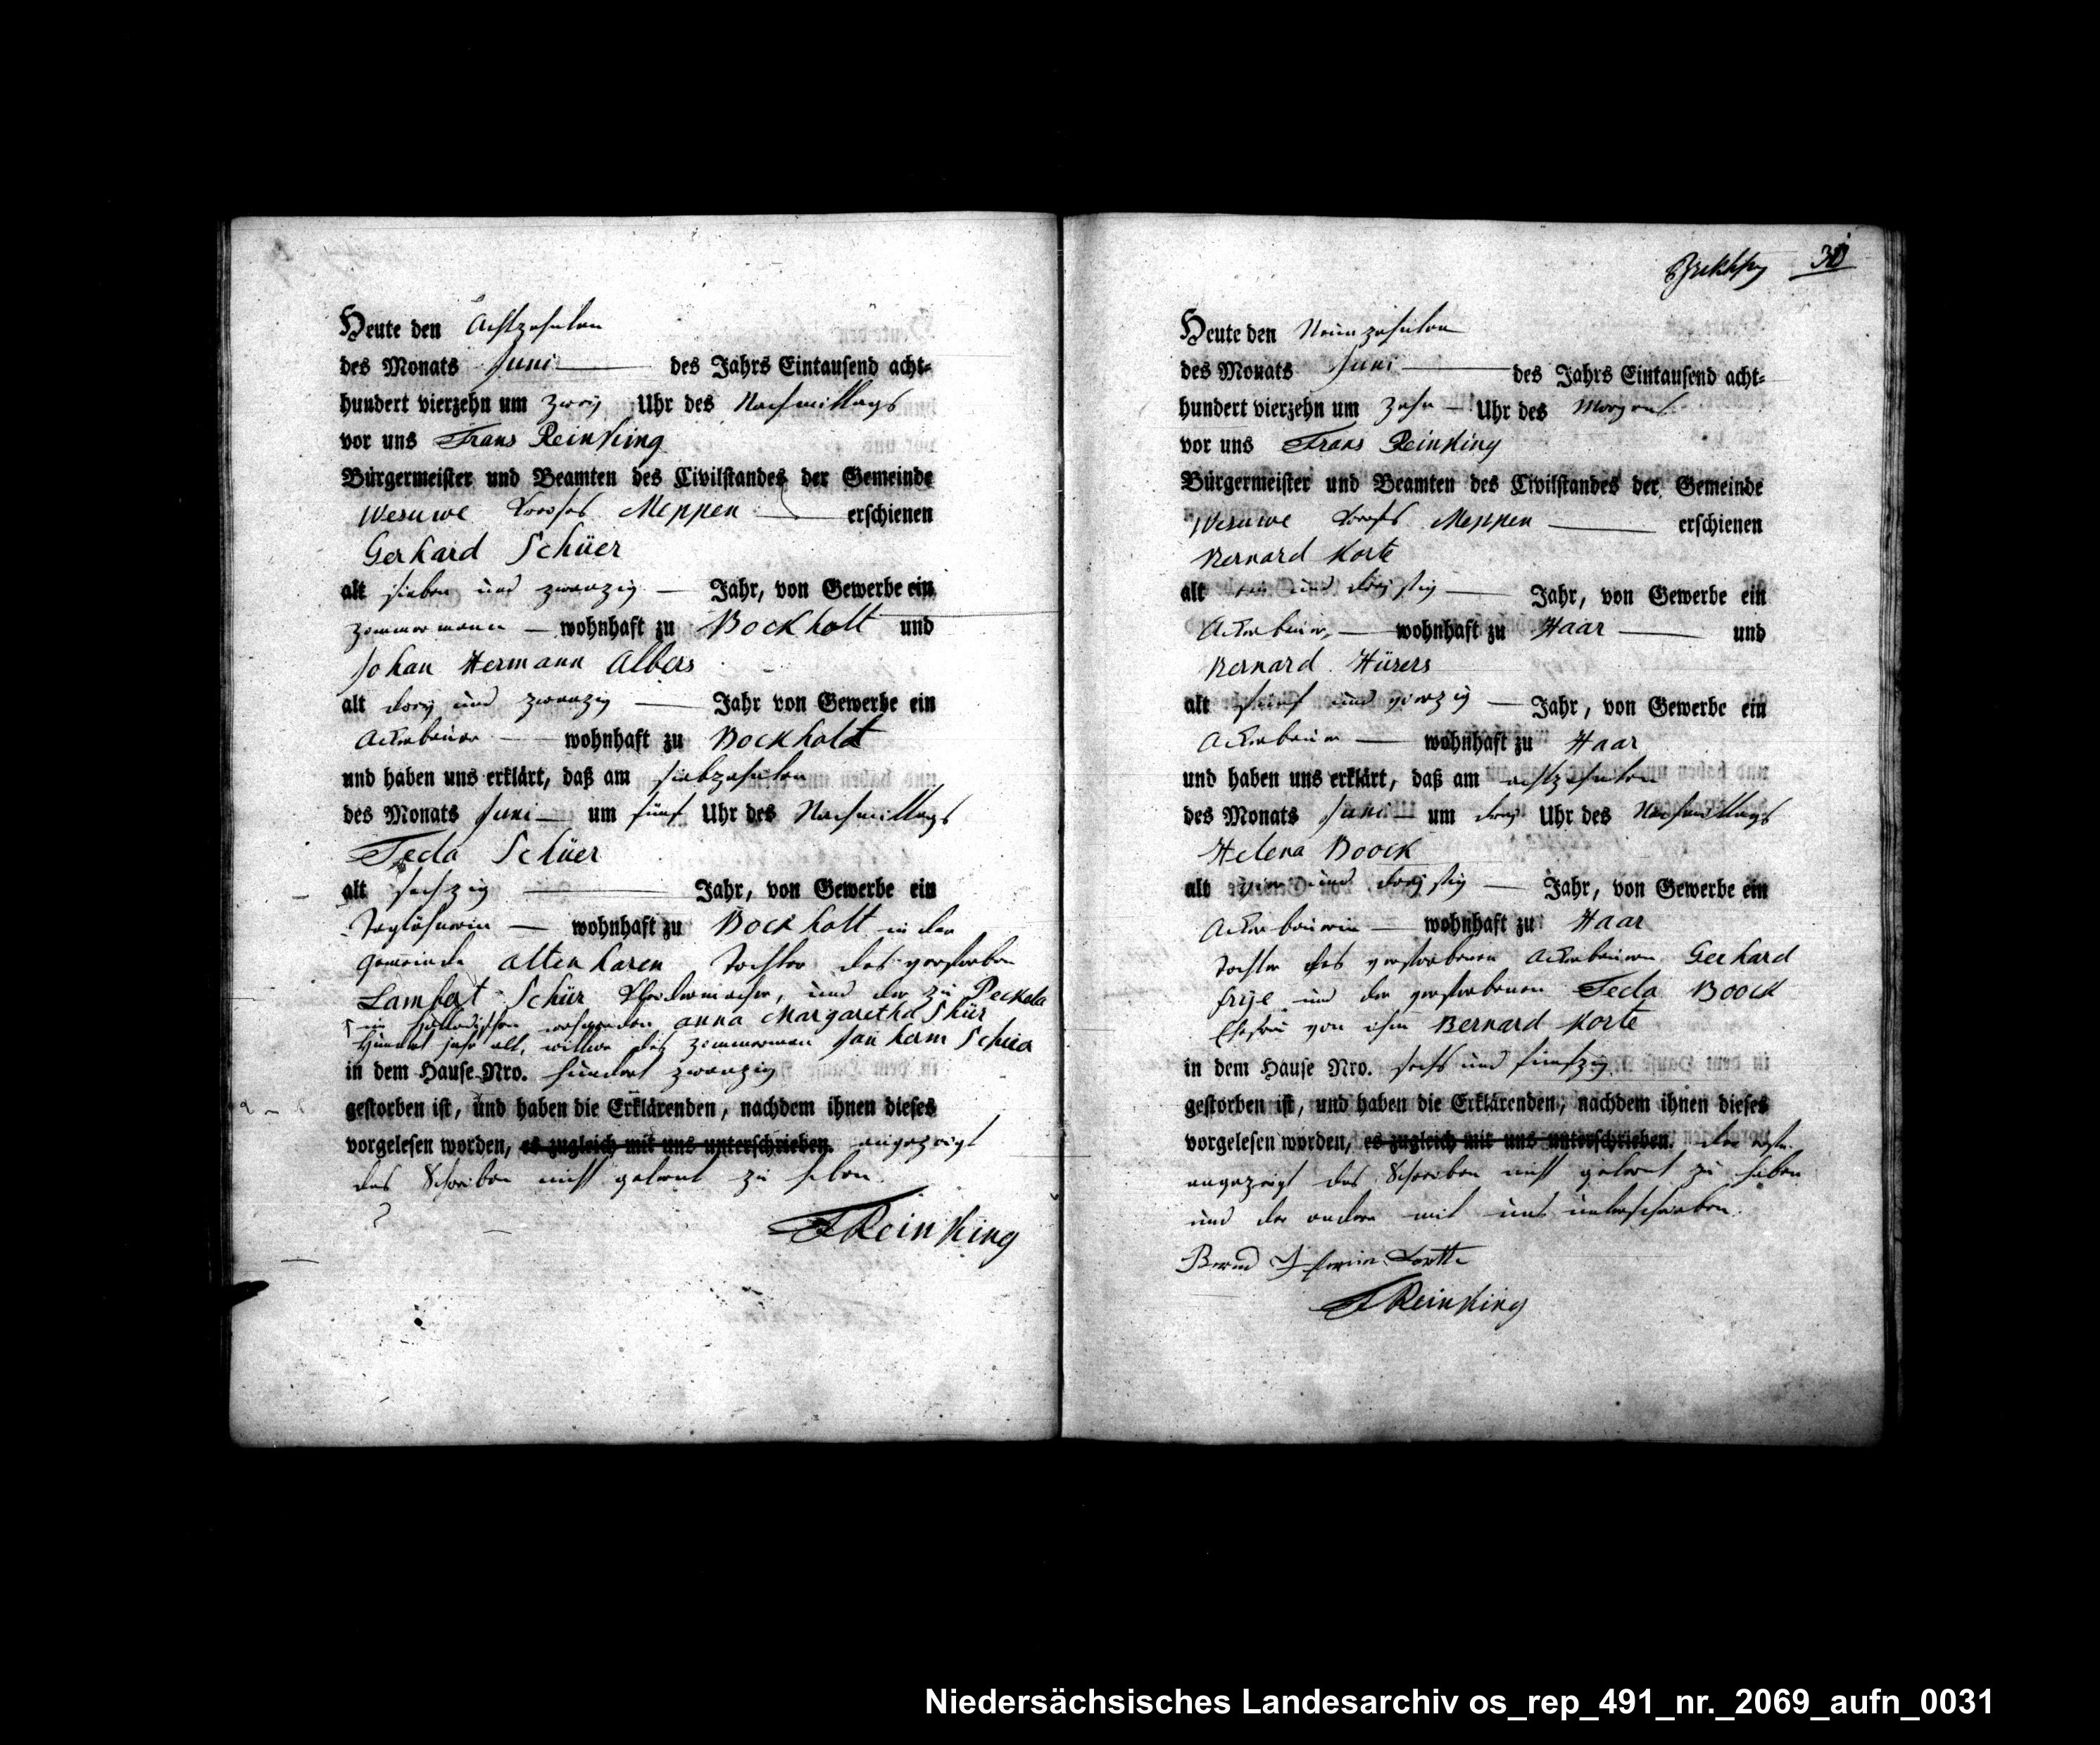 Heute den Achtzehnten
des Monats Juni des Jahrs Eintausend acht-
hundert vierzehn um zwey Uhr des Nachmittags
vor uns Frans Reinking
Bürgermeister und Beamten des Civilstandes der Gemeinde
Wesuwe Kreises Meppen erschienen
Gerhard Schüer
alt sieben und zwanzig Jahr, von Gewerbe ein
Zimmermann wohnhaft zu Bockholt und
Johan Hermann Albers
alt drey und zwanzig Jahr von Gewerbe ein
Ackerbauer wohnhaft zu Bockholdt
und haben uns erklärt, daß am siebzehnten
des Monats Juni um fünf Uhr des Nachmittags
Teda Schüer
alt sechzig Jahr, von Gewerbe ein
Taglöhnerin wohnhaft zu Bockholt in der
Gemeinde Altenharen Tochter des verstorben
Lambert Schür und der zu Peckela
im Holländischen wohnenden Anna Margaretha Schür
Hundert Jahr alt, Wittwe des Zimmerman Jan Harm Schüer
in dem Hause Nro. hundert zwanzig
gestorben ist, und haben die Erklärenden, nachdem ihnen dieses
vorgelesen worden, es zugleich mit uns unterschrieben. angezeigt
das Schreiben nicht gelernt zu haben
FReinking
30
Heute den Neunzehnten
des Monats Juni des Jahrs Eintausend acht-
hundert vierzehn um Zehn Uhr des Morgens
vor uns Frans Reinking
Bürgermeister und Beamten des Civilstandes der Gemeinde
Wesuwe Kreises Meppen erschienen
Bernard Korte
alt und dreysig Jahr, von Gewerbe ein
Ackerbauer wohnhaft zu Haar und
Bernard Hüsers
alt fünf und vierzig Jahr, von Gewerbe ein
Ackerbauer wohnhaft zu Haar
und haben uns erklärt, daß am achtzehnten
des Monats Juni um drey Uhr des Nachmittags
Helena Boock
alt und dreysig Jahr, von Gewerbe ein
Ackerbauerin wohnhaft zu Haar
Tochter des verstorbenen Ackerbauern Gerhard
Frije und der verstorbenen Teda Boock
Ehefrau von ihm Bernard Korte
in dem Hause Nro. sechs und fünfzig
gestorben ist, und haben die Erklärenden, nachdem ihnen dieses
vorgelesen worden, es zugleich mit uns unterschrieben. der
angezeigt das Schreiben nicht gelernt zu haben
und der andere mit uns unterschrieben.
FReinking
Niedersächsisches Landesarchiv os_rep_491_nr._2069_aufn_0031